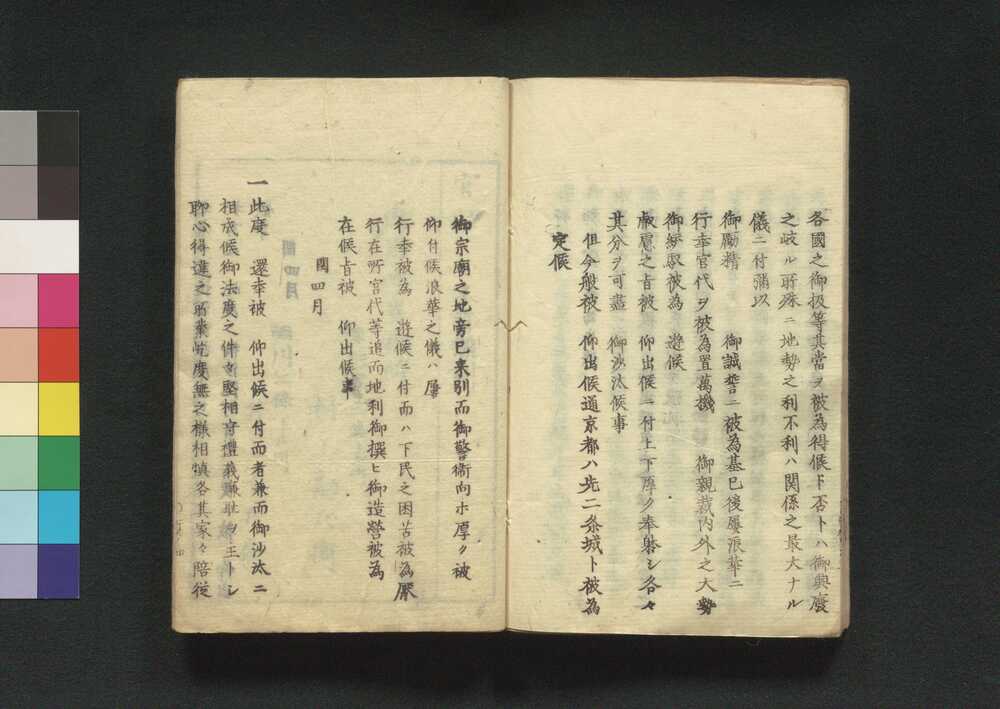 各國之御扱等其當ヲ被為得候ト否トハ御興廢
之岐ル所殊ニ地勢之利不利ハ関係之最大ナル
儀ニ付彌以
御勵精 御誠誓ニ被為基已後屢浪華ニ
行幸官代ヲ被為置萬機 御親裁内外之大勢
御綏馭被為 遊候
叡慮之旨被 仰出候ニ付上下厚ク奉躰シ各々
其分ヲ可盡 御沙汰候事
但今般被 仰出候通京都ハ先二条城ト被為
定候
御宗廟之地旁已来別而御警衛向ホ厚ク被
仰付候浪華之儀ハ屢
行幸被為 遊候ニ付而ハ下民之困苦被為厭
行在所官代等追而地利御撰ヒ御造營被為
在候旨被 仰出候事
閏四月
一此度 還幸被 仰出候ニ付而者兼而御沙汰ニ
相成候御法度之件々堅相守禮義廉耻ヲ主トシ
聊心得違之所業屹度無之様相慎各其家々陪従